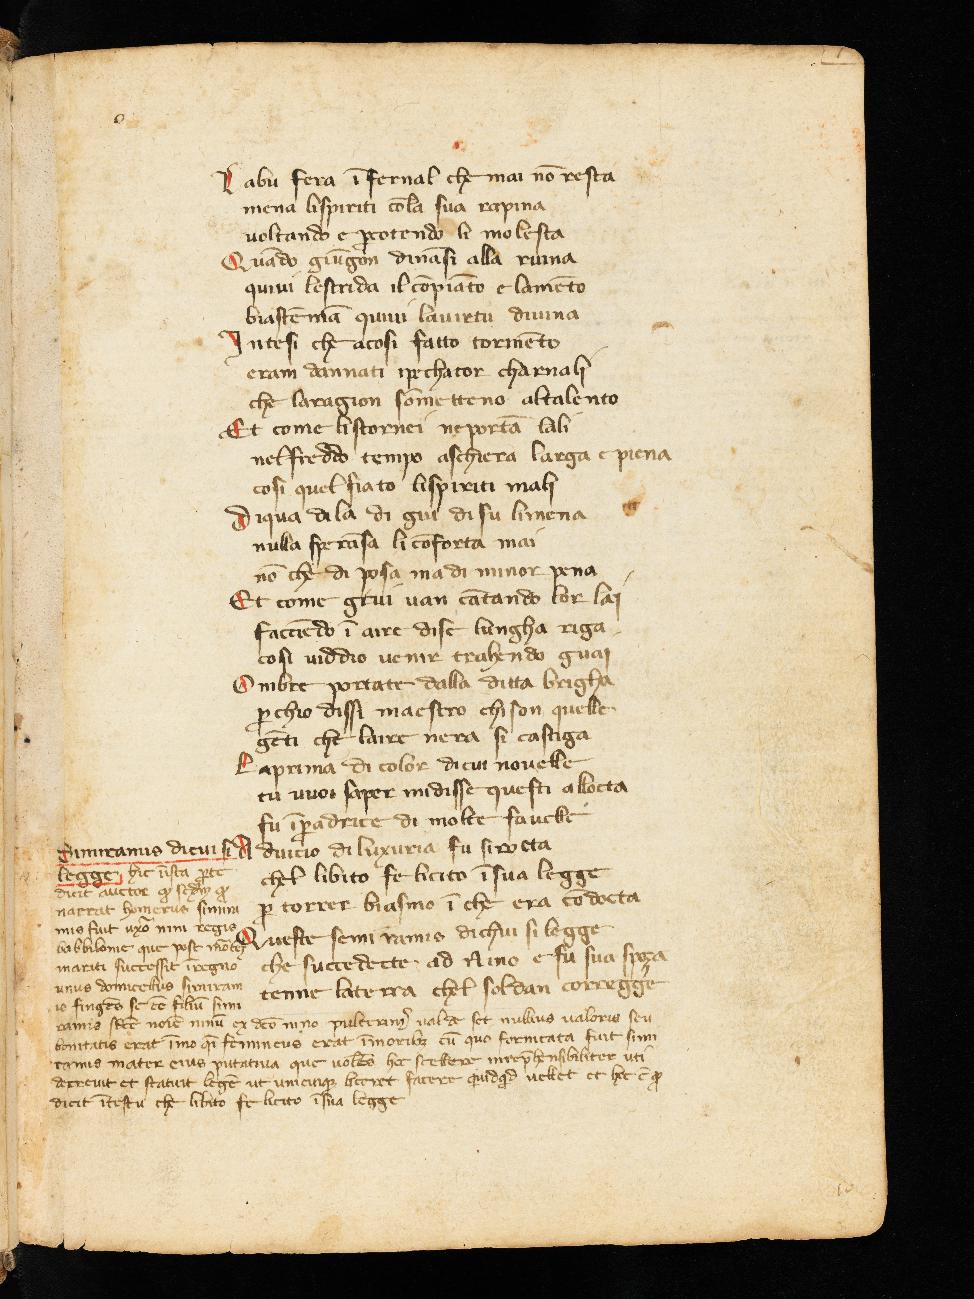 Labu fera ī fernal che mai nō resta
mena lispiriti cōla sua rapina
voltando e ꝑcotendo li molesta
Quādo giūgon dināsi alla ruina
quiui lestrida il cōpiāto e lamēto
biastēmā quiui lauirtu diuina
Intesi che acosi fatto tormēto
eram dannati ipechator charnali
che laragion sōmetteno altalento
Et come listornei neportā lali
nelfreddo tempo aschiera larga e piena
cosi quel fiato lispiriti mali
Diqua dila di giu disu limena
nulla sperāsa li cōforta mai
nō che di posa madi minor pena
Et come grui uan cātando lor lai
facciēdo ī aire dise lungha riga
cosi uiddio uenir trahendo guai
Ombre portate dalla ditta brigha
ꝑchio dissi maestro chison quelle
gēti che laire nera si castiga
Laprima di color dicui nouelle
tu uuoi saper midisse questi allocta
fu īꝑadrice di molte fauelle
A diuicio di luxuria fu si rocta
chel libito fe licito ī sua legge
ꝑ torrer biasmo ī che era cōdocta
Queste semiramis dichui si legge
che succedecte ad Nino e fu sua spoza
tenne laterra chel soldan corregge
Simiramis dicui si
legge hic ī ista ꝑte
dicit auctor
narrat homerus simira
mis fuit uxor nini regis
babbilonie que post mortē
mariti successit ī regno
unus domicellus simiram
is fingēs se eē filiū simi
ramis nōīe ninū ex dco nino pulcerimꝰ ualde set nullius ualoris seu
bonitatis erat īmo qi femineus erat ī moribꝫ cū quo fornicata fuit simi
ramis mater eius putatiua que uolēs hoc scelere inrepͬhensibiliter uti
decreuit et statuit legē ut unicuiqꝫ liceret facere quidqd uellet et hoc ē
dicit ītestu che libito fe licito ī sua legge